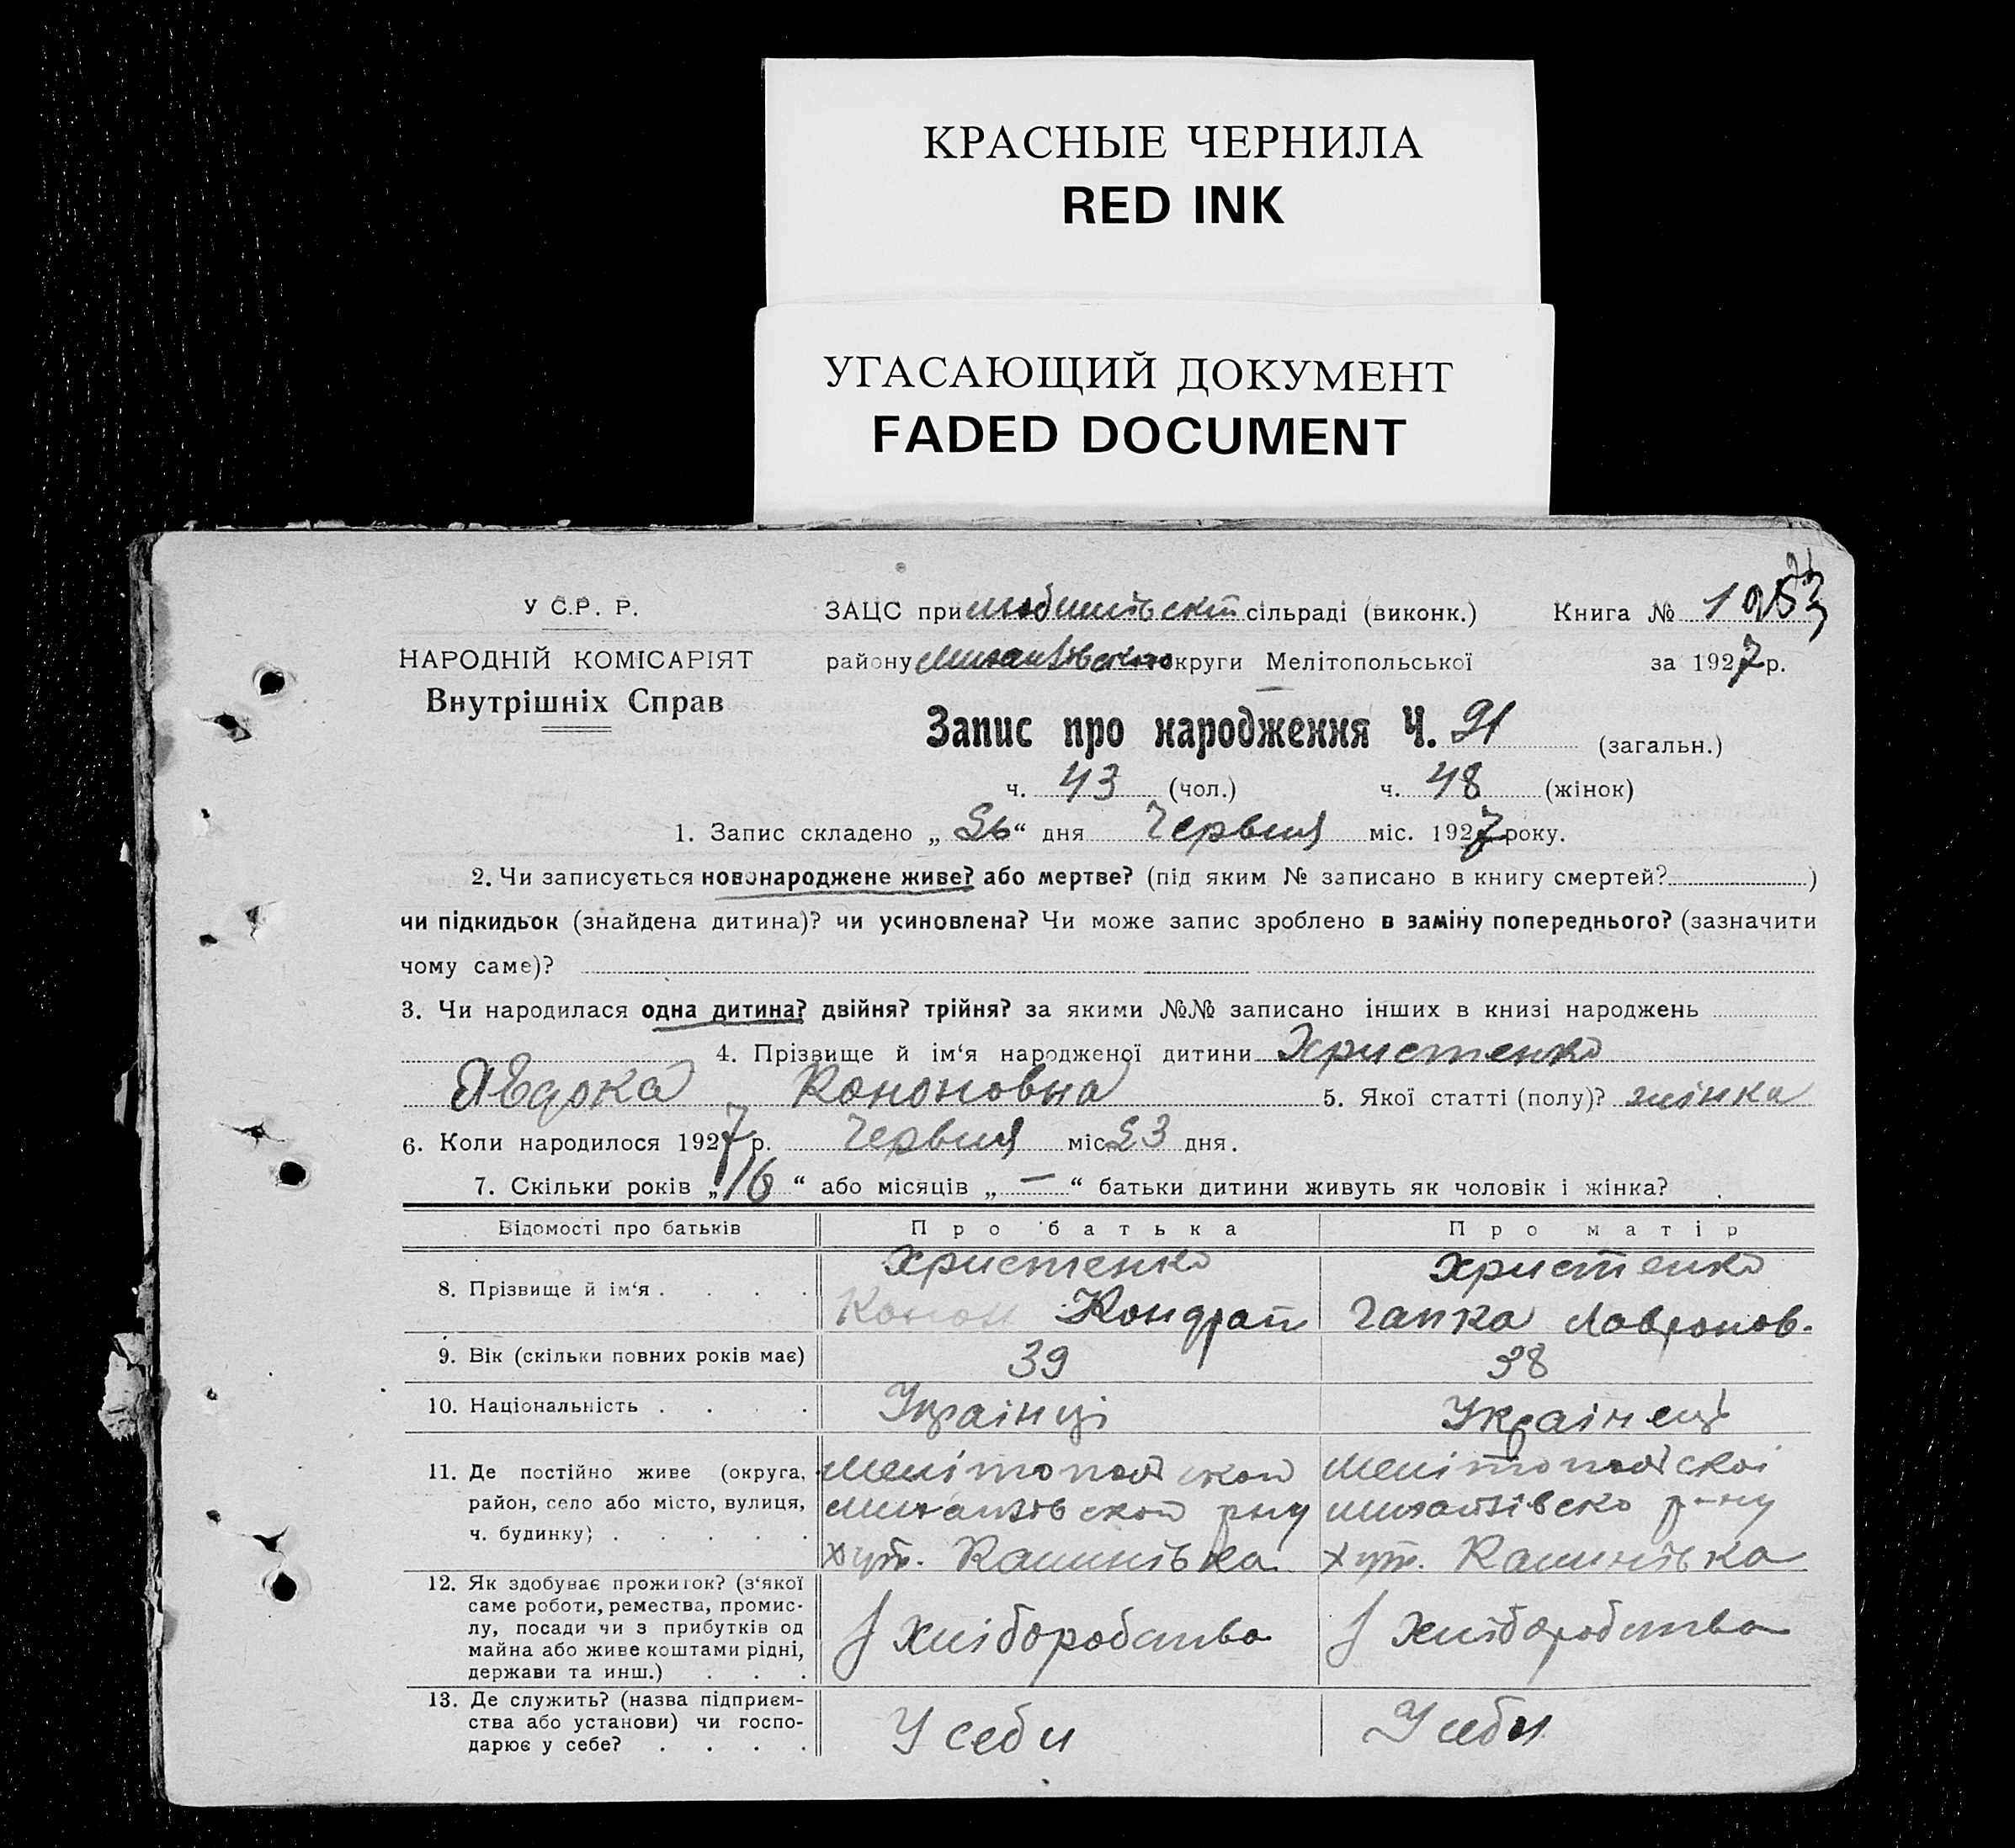 КРАСНЫЕ ЧЕРНИЛА
RED INK
УГАСАЮЩИЙ ДОКУМЕНТ
FADED DOCUMENT
У С.Р. Р.
НАРОДНІЙ КОМІСАРІЯТ
Внутрішніх Справ
ЗАЦС при сільраді (виконк.) Книга № 1
району округи Мелітопольської за 1927 р.
Запис про народження Ч. 91 (загальн.)
ч. 43 (чол.) ч. 48 (жінок)
1. Запис складено „ 26 “ дня Червня міс. 1927 року.
2. Чи записується новонароджене живе? або мертве? (під яким № записано в книгу смертей? )
чи підкидьок (знайдена дитина)? чи усиновлена? Чи може запис зроблено в заміну попереднього? (зазначити
чому саме)?
3. Чи народилася одна дитина? двійня? трійня? за якими №№ записано інших в книзі народжень
4. Прізвище й ім‘я народженої дитини Христенко
Явдока Кононовна 5. Якої статті (полу)? жінка
6. Коли народилося 1927 р. Червня міс. 23 дня.
7. Скільки років „ 16 “ або місяців „ — “ батьки дитини живуть як чоловік і жінка?
Відомості про батьків Про батька Про матір
8. Прізвище й ім‘я . . . . Христенко Христенко
Конон Кондрат Гапка Лавронов.
9. Вік (скільки повних років має) 39 38
10. Національність . . . . Українці Українець
11. Де постійно живе (округа, район, село або місто, вулиця, ч. будинку) . . . . .
хут. Калинівка хут. Калинівка
12. Як здобуває прожиток? (з‘якої саме роботи, ремества, промислу, посади чи з прибутків од майна або живе коштами рідні, держави та инш.) . . . Хліборобства Хліборобства
13. Де служить? (назва підприємства або установи) чи господарює у себе? . . . . У себи У себи